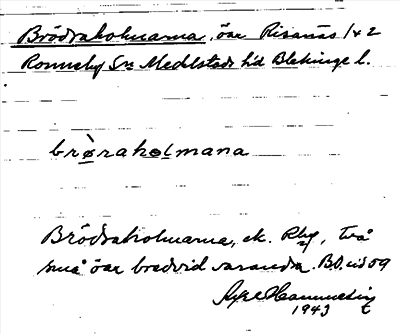 Brödraholmarna, öar Risanäs 1+2
Ronneby Sn Medelstads hd Blekinge l.
brǿraholmana
Brödraholmarna, ek. Rby, två
små öar bredvid varandra. BD. nid 09
1943